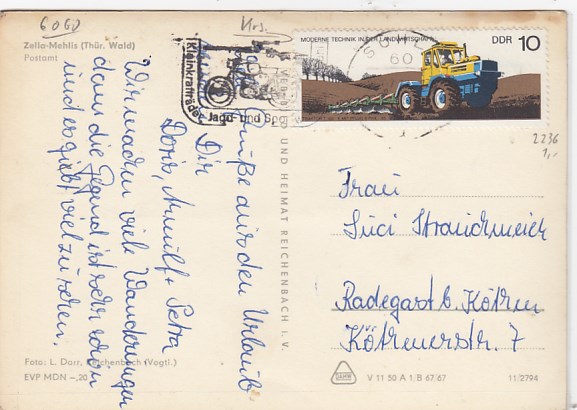 6060
Urs.
Zella-Mehlis (Thür. Wald)
Postamt
Kleinkrafträder
Jagd- und Spo
SUHL
60
MODERNE TECHNIK IN DER LANDWIRTSCHAFT
DDR 10
2236
1,-
Grüße aus den Urlaub
Dir
Doris, Arnulf + Petra
Wir machen viele Wanderungen
denn die Gegend ist sehr schön
und es giebt viel zu sehen.
VEB BILD UND HEIMAT REICHENBACH I. V.
Frau
Luci Strauchmeier
Radegast b. Köthen
Köthenerstr. 7
Foto: L. Darr, Reichenbach (Vogtl.)
EVP MDN –,20
V 11 50 A 1/B 67/67
11/2794